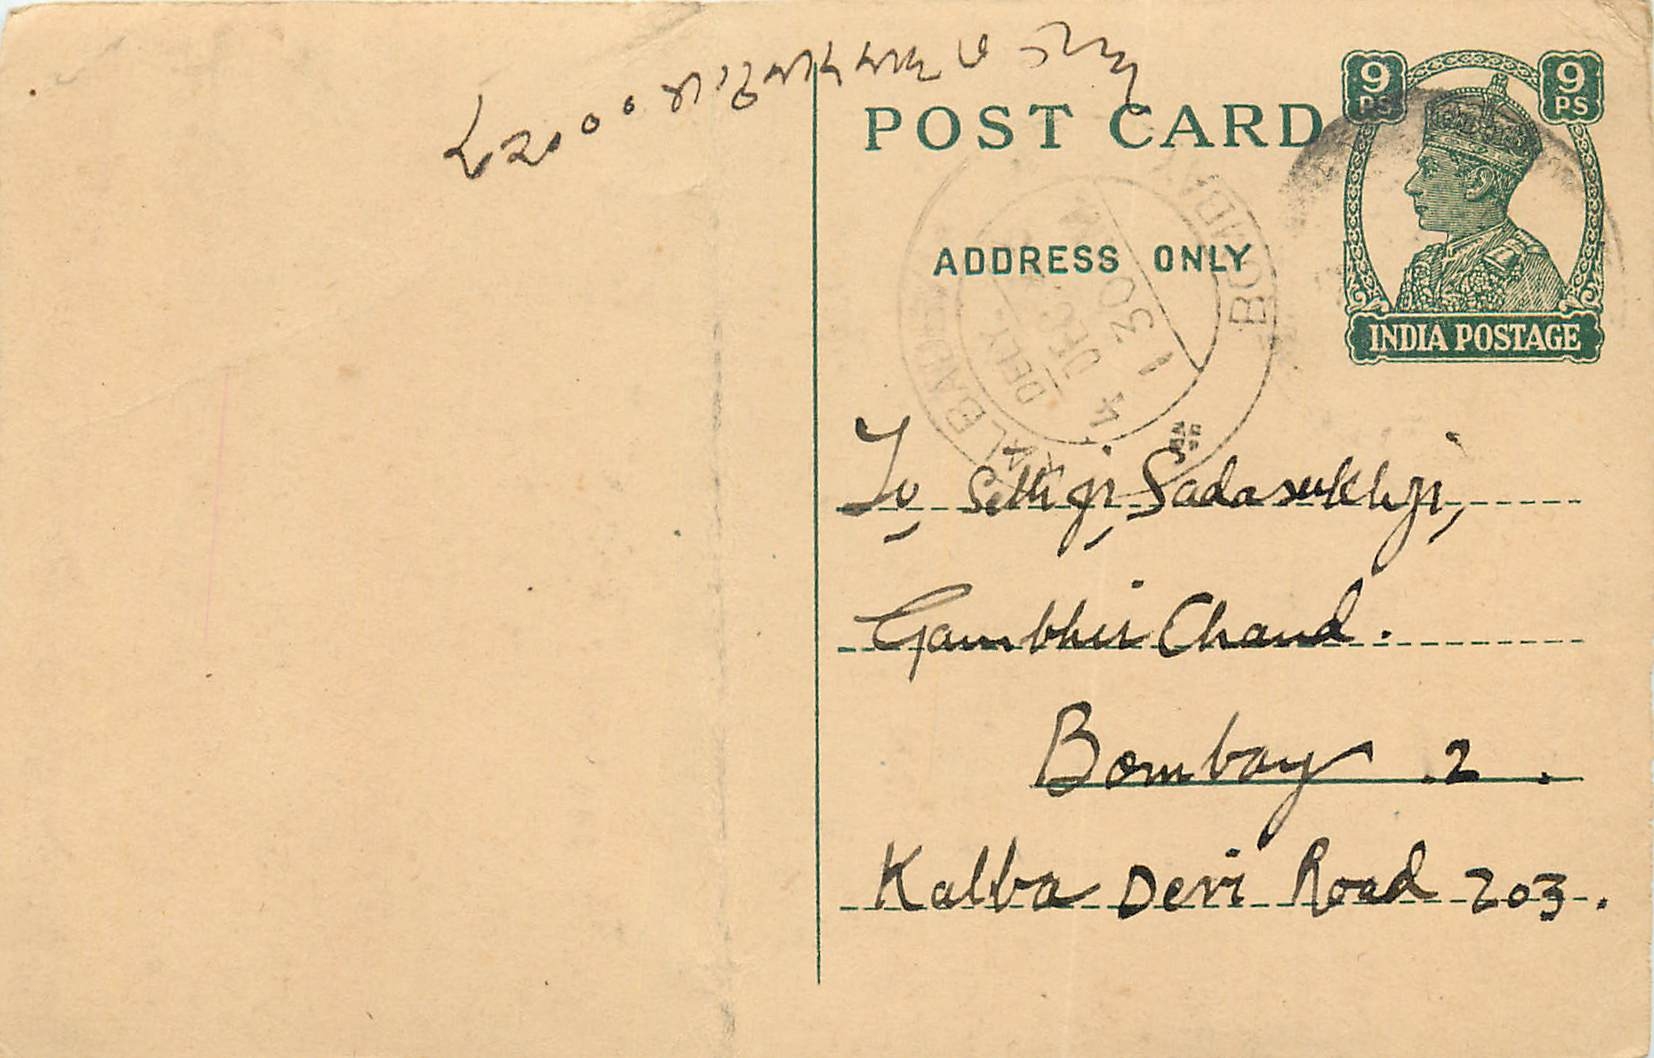 9 PS 9 PS
POST CARD
ADDRESS ONLY
INDIA POSTAGE
BOMBAY
DELY.
4 DEC.
1 30
To, Sethji, Sadasukhji,
Gambhir Chand.
Bombay .2.
Kalba Devi Road 203.